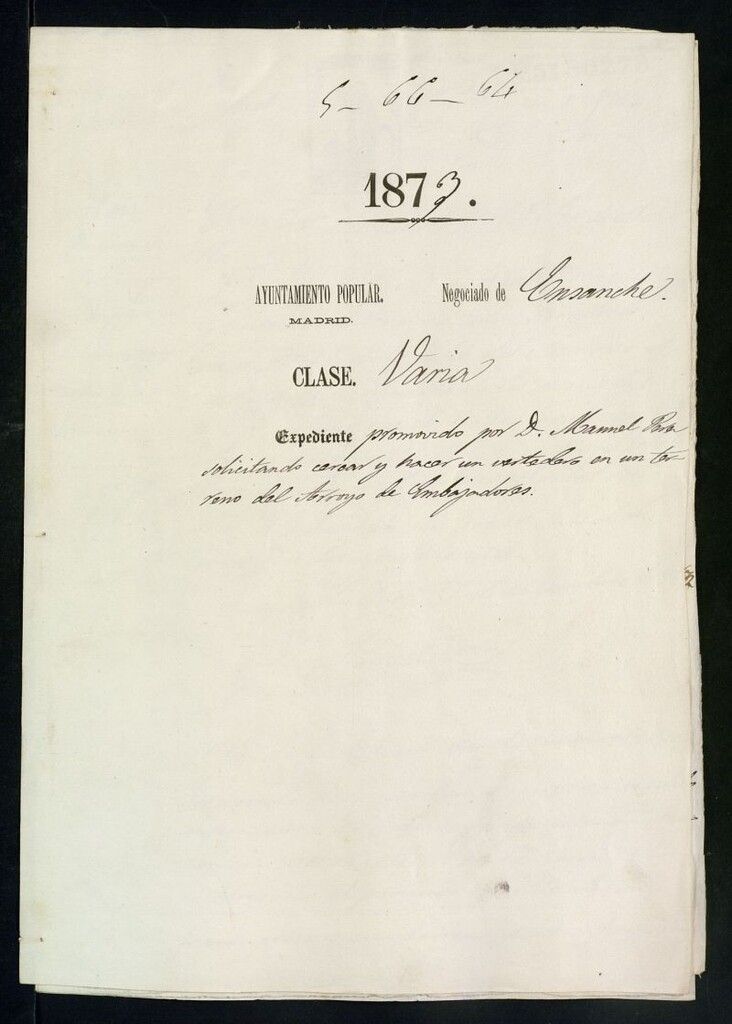 5 - 66 - 64
1873.
AYUNTAMIENTO POPULAR. Negociado de Ensanche.
MADRID.
CLASE. Varia
Expediente promovido por D. Manuel
solicitando cercar y hacer un vertedero en un ter-
reno del Arroyo de Embajadores.